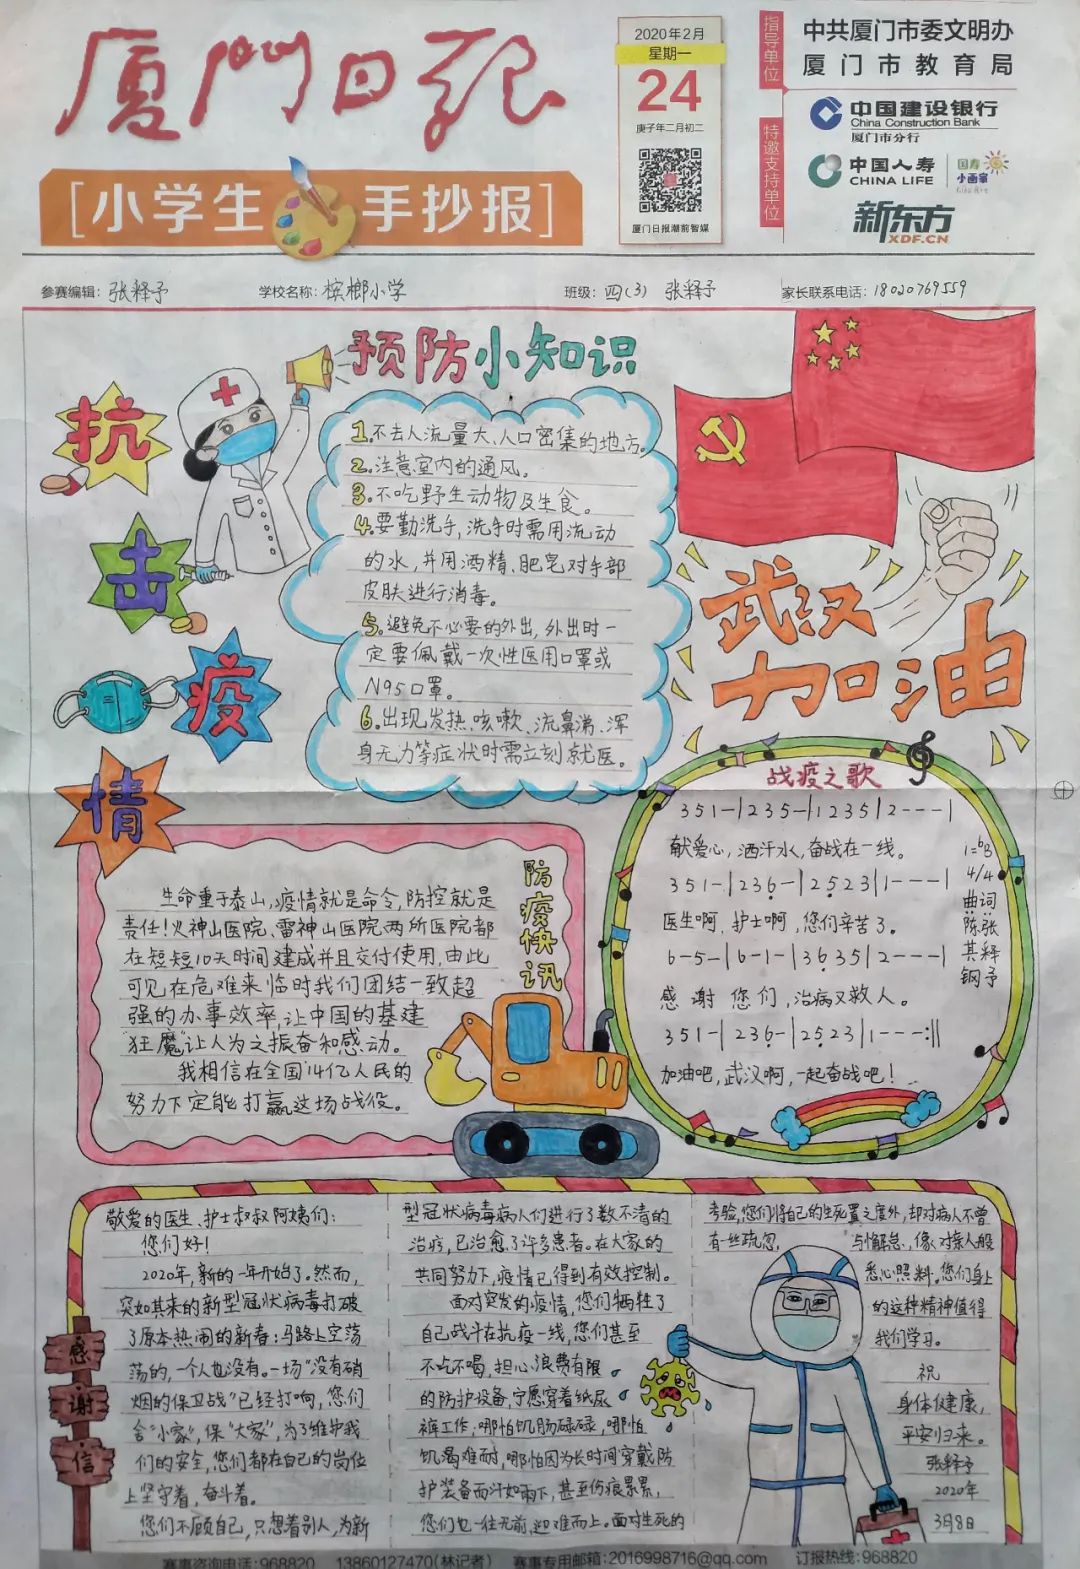 厦门日报
[小学生手抄报]
2020年2月
星期一
24
庚子年二月初二
厦门日报潮前智媒
指导单位
中共厦门市委文明办
厦门市教育局
特邀支持单位
中国建设银行
China Construction Bank
厦门市分行
中国人寿
CHINA LIFE
国寿
小画家
新东方
XDF.CN
参赛编辑：张释予 学校名称：槟榔小学 班级：四(3) 张释予 家长联系电话：18020769559
抗
击
疫
情
预防小知识
1.不去人流量大、人口密集的地方。
2.注意室内的通风。
3.不吃野生动物及生食。
4.要勤洗手，洗手时需用流动
的水，并用酒精、肥皂对手部
皮肤进行消毒。
5.避免不必要的外出，外出时一
定要佩戴一次性医用口罩或
N95口罩。
6.出现发热、咳嗽、流鼻涕、浑
身无力等症状时需立刻就医。
武汉
加油
防疫快讯
生命重于泰山，疫情就是命令，防控就是
责任！火神山医院、雷神山医院两所医院都
在短短10天时间建成并且交付使用，由此
可见在危难来临时我们团结一致超
强的办事效率，让中国的基建
狂魔"让人为之振奋和感动。
我相信在全国14亿人民的
努力下定能打赢这场战役。
战疫之歌
351-|235-|1235|2---|
献爱心，洒汗水，奋战在一线。
351-|236-|2523|1---|
医生啊，护士啊，您们辛苦了。
6-5-|6-1-|3635|2---|
感谢您们，治病又救人。
351-|236-|2523|1---:||
加油吧，武汉啊，一起奋战吧！
1=bB
4/4
曲词
陈张
其释
钢予
感谢信
敬爱的医生、护士叔叔阿姨们：
您们好！
2020年，新的一年开始了。然而，
突如其来的新型冠状病毒打破
了原本热闹的新春：马路上空荡
荡的，一个人也没有。一场"没有硝
烟的保卫战"已经打响，您们
舍"小家"，保"大家"，为了维护我
们的安全，您们都在自己的岗位
上坚守着，奋斗着。
您们不顾自己，只想着别人，为新
型冠状病毒病人们进行了数不清的
治疗，已治愈了许多患者。在大家的
共同努力下，疫情已得到有效控制。
面对突发的疫情，您们牺牲了
自己战斗在抗疫一线，您们甚至
不吃不喝，担心浪费有限
的防护设备，宁愿穿着纸尿
裤工作，哪怕饥肠碌碌，哪怕
饥渴难耐，哪怕因为长时间穿戴防
护装备而汗如雨下，甚至伤痕累累，
您们也一往无前，迎难而上。面对生死的
考验，您们将自己的生死置之度外，却对病人不曾
有一丝疏忽，与懈怠，像对亲人般
悉心照料。您们身上
的这种精神值得
我们学习。
祝
身体健康，
平安归来。
张释予
2020年
3月8日
赛事咨询电话：968820 13860127470(林记者) 赛事专用邮箱：2016998716@qq.com 订报热线：968820